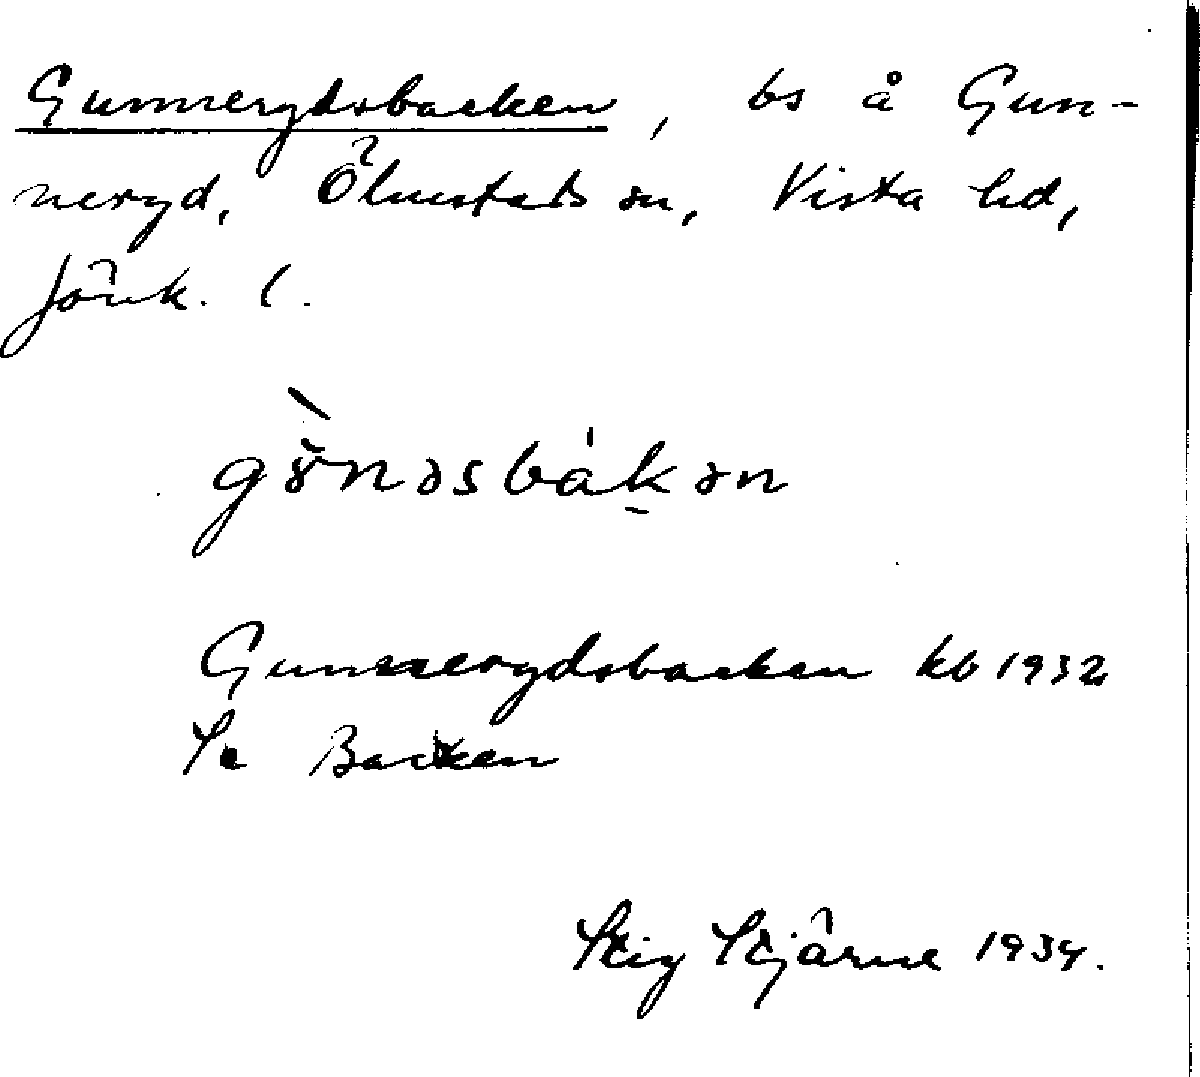 Gunnerydsbacken, bs å Gun-
neryd, Ölmstads sn, Vista hd,
Jönk. l.
gö̀nəsbákən
Gunnerydsbacken kb 1932
Se Backen
Stig Stjärne 1934.